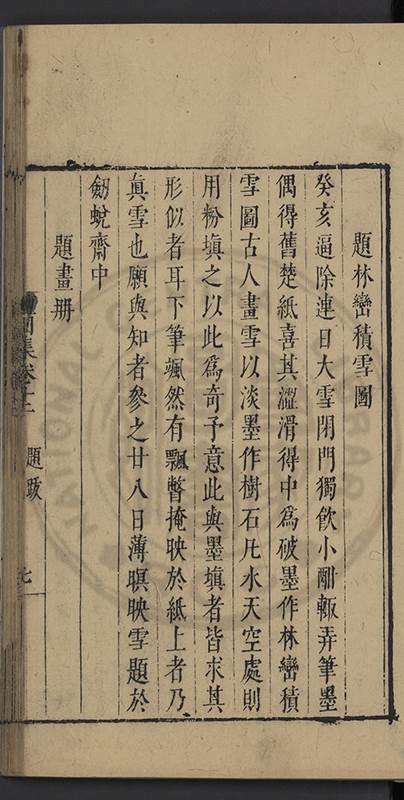 題林巒積雪圖
癸亥逼除連日大雪閉門獨飲小酣輙弄筆墨
偶得舊楚紙喜其澀滑得中為破墨作林巒積
雪圖古人畫雪以淡墨作樹石凡水天空處則
用粉填之以此為奇予意此與墨填者皆求其
形似者耳下筆颯然有飄瞥掩映於紙上者乃
真雪也願與知者參之廿八日薄暝映雪題於
劒蛻齋中
題畫册
集卷十二 題跋 七